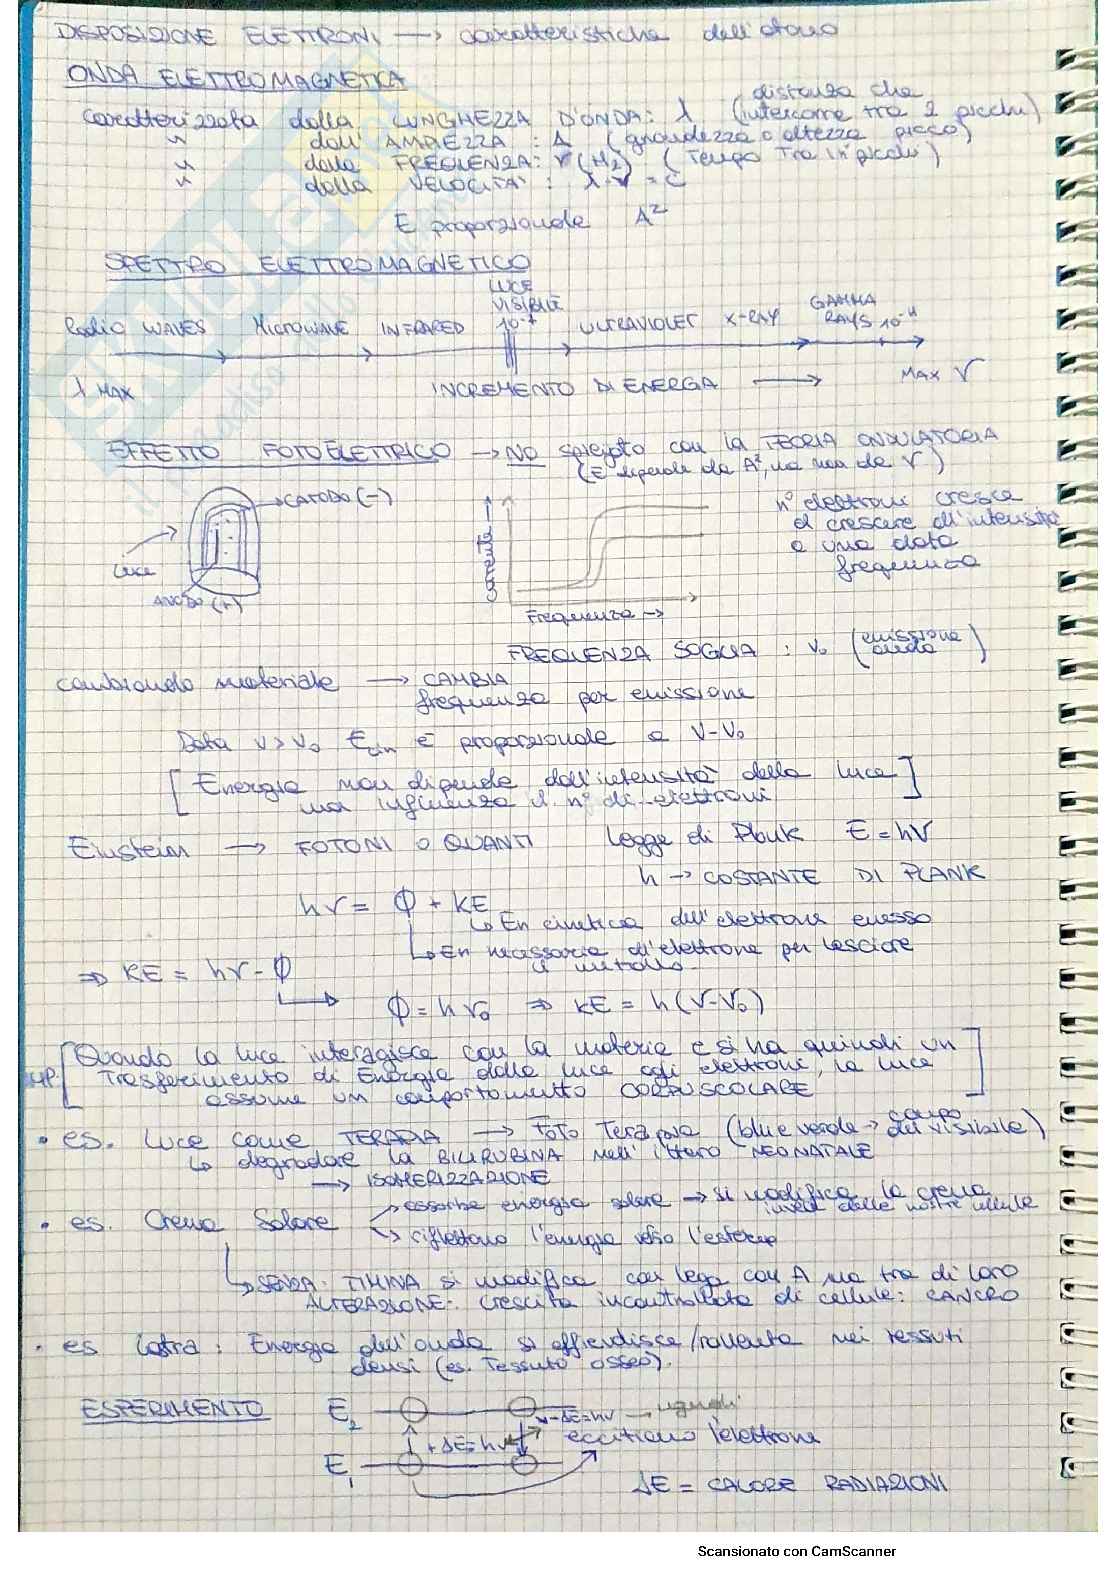 DISPOSIZIONE ELETTRONI → caratteristiche dell'atomo
ONDA ELETTROMAGNETICA
Caratterizzata dalla LUNGHEZZA D'ONDA: λ (distanza che intercorre tra 2 picchi)
" dall'AMPIEZZA : A (grandezza o altezza picco)
" dalla FREQUENZA: ν (Hz) (Tempo tra i picchi)
" della VELOCITA' : λ·ν = c
E proporzionale A²
SPETTRO ELETTROMAGNETICO
LUCE
VISIBILE
Radio WAVES MICROWAVE INFRARED 10⁻⁷ ULTRAVIOLET X-RAY GAMMA RAYS
λ MAX INCREMENTO DI ENERGIA → MAX ν
EFFETTO FOTOELETTRICO → NO spiegato con la TEORIA ONDULATORIA
(E dipende da A², ma non da ν)
CATODO (-)
Luce
ANODO (+)
Corrente →
Frequenza →
n° elettroni cresce
al crescere dell'intensità
a una data
frequenza
FREQUENZA SOGLIA : ν₀ (emissione
cambiando materiale → CAMBIA
frequenza per emissione
Data ν > ν₀ Ecin è proporzionale a ν-ν₀
[Energia non dipende dall'intensità della luce]
ma influenza il n° di elettroni
Einstein → FOTONI O QUANTI Legge di Plank E = hν
h → COSTANTE DI PLANK
hν = Φ + KE
↳ En cinetica dell'elettrone emesso
↳ En necessaria all'elettrone per lasciare
il metallo
⇒ KE = hν - Φ
Φ = hν₀ ⇒ KE = h(ν-ν₀)
HP. [Quando la luce interagisce con la materia e si ha quindi un
trasferimento di Energia dalla luce agli elettroni, la luce
assume un comportamento CORPUSCOLARE]
• es. Luce come TERAPIA → FOTO Terapia (blue verde → campo del visibile)
↳ degradare la BILIRUBINA nell'ittero NEONATALE
→ ISOMERIZZAZIONE
• es. Crema Solare → assorbe energia solare → si modifica la crema
invece delle nostre cellule
→ riflettono l'energia verso l'esterno
↳ SENZA: TIMINA si modifica con lega con A ma tra di loro
ALTERAZIONE: crescita incontrollata di cellule: CANCRO
• es lastra : Energia dell'onda si affievolisce/rallenta nei tessuti
densi (es. Tessuto osseo).
ESPERIMENTO
E₂
-ΔE=hν → uguali
+ΔE=hν eccitiamo l'elettrone
E₁
ΔE = CALORE RADIAZIONI
Scansionato con CamScanner